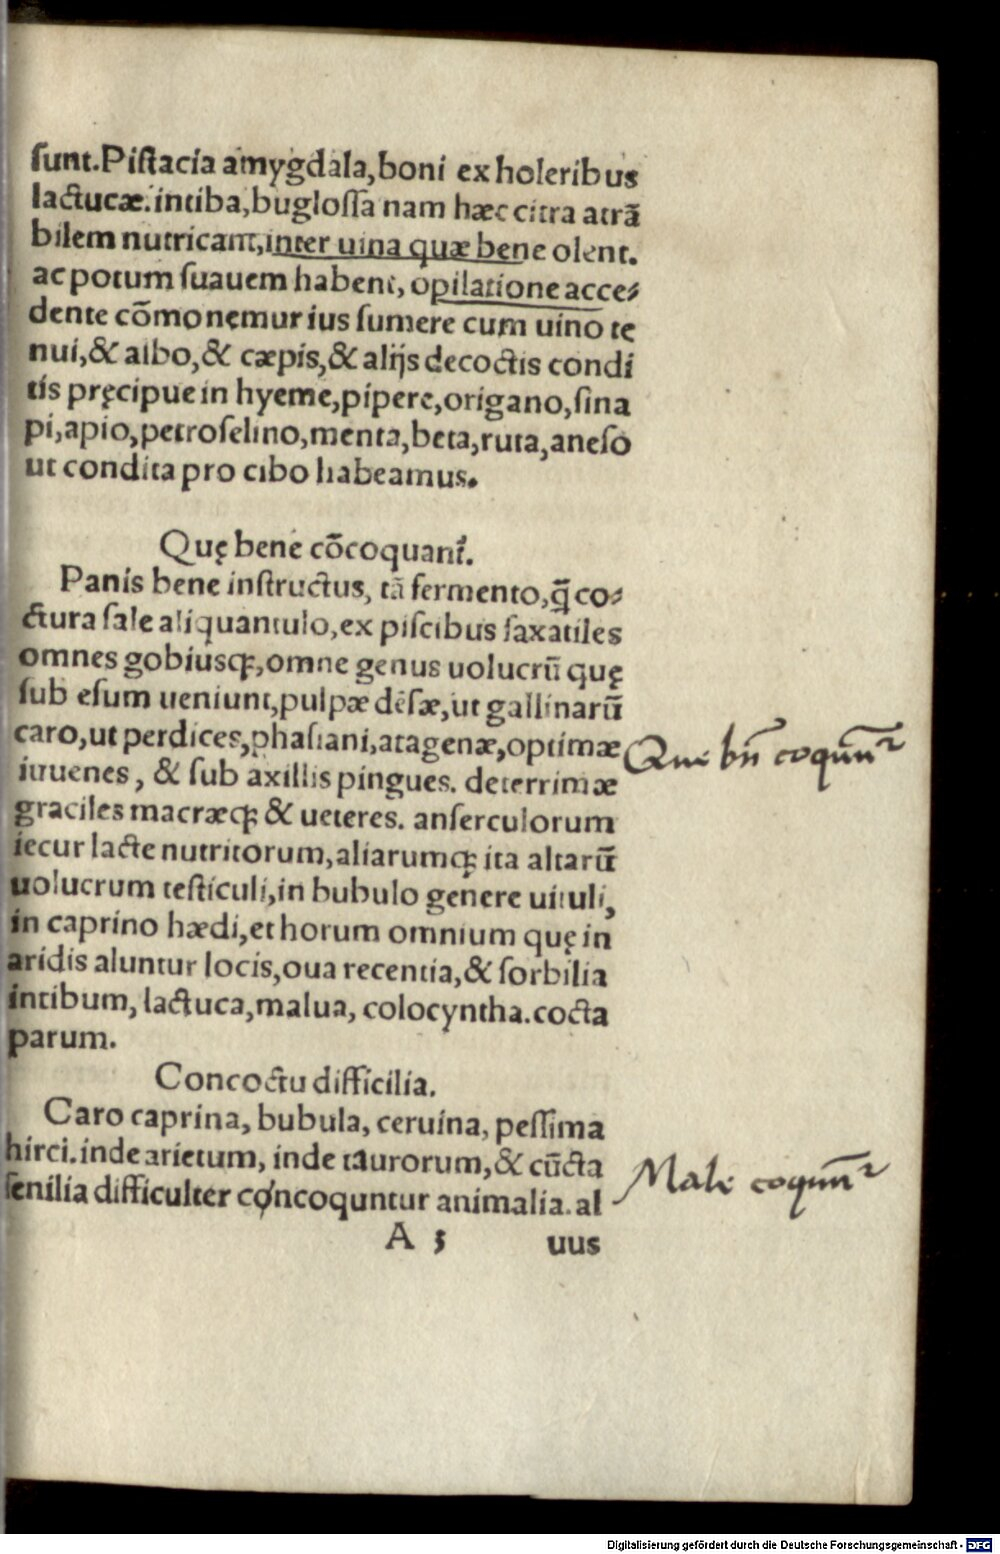 sunt.Pistacia amygdala,boni ex holeribus
lactucæ.intiba,buglossa nam hæc citra atrã
bilem nutricant,inter uina quæ bene olent.
ac potum suauem habent, opilatione acce⸗
dente cõmonemur ius sumere cum uino te
nui,& albo,& cæpis,& alijs decoctis condi
tis pręcipue in hyeme,pipere,origano,sina
pi,apio,petroselino,menta,beta,ruta,aneso
ut condita pro cibo habeamus.
Quę bene cõcoquant᷑.
Panis bene instructus, tã fermento,q̃ co⸗
ctura sale aliquantulo,ex piscibus saxatiles
omnes gobiusq;,omne genus uolucrũ quę
sub esum ueniunt,pulpæ dẽsæ,ut gallinarũ
caro,ut perdices,phasiani,atagenæ,optimæ
iuuenes, & sub axillis pingues. deterrimæ
graciles macræq; & ueteres. anserculorum
iecur lacte nutritorum,aliarumq; ita altarũ
uolucrum testiculi,in bubulo genere uituli,
in caprino hædi,et horum omnium quę in
aridis aluntur locis,oua recentia,& sorbilia
intibum, lactuca,malua, colocyntha.cocta
parum.
Concoctu difficilia.
Caro caprina, bubula, ceruina, pessima
hirci.inde arietum, inde taurorum,& cũcta
senilia difficulter concoquntur animalia.al
A 3 uus
Que bñ coquũt᷑
Male coquũt᷑
Digitalisierung gefördert durch die Deutsche Forschungsgemeinschaft - DFG